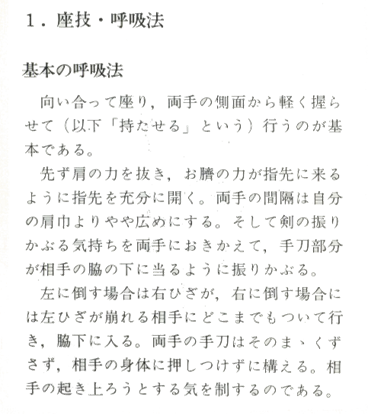 1．座技・呼吸法
基本の呼吸法
　向い合って座り，両手の側面から軽く握ら
せて（以下「持たせる」という）行うのが基
本である。
　先ず肩の力を抜き，お臍の力が指先に来る
ように指先を充分に開く。両手の間隔は自分
の肩巾よりやや広めにする。そして剣の振り
かぶる気持ちを両手におきかえて，手刀部分
が相手の脇の下に当るように振りかぶる。
　左に倒す場合は右ひざが，右に倒す場合に
は左ひざが崩れる相手にどこまでもついて行
き，脇下に入る。両手の手刀はそのまゝくず
さず，相手の身体に押しつけずに構える。相
手の起き上ろうとする気を制するのである。